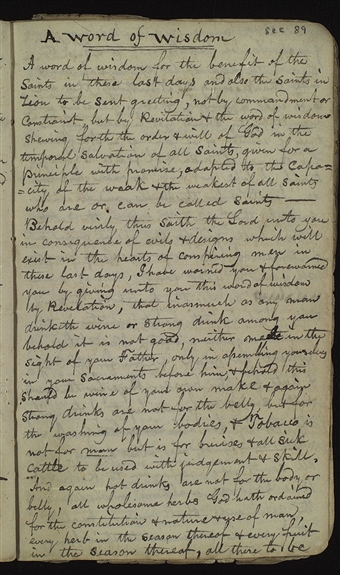 Sec 89
A word of wisdom
A word of wisdom for the benefit of the
Saints in these last days and also the Saints in
Zion to be sent greeting, not by commandment or
Constraint, but by Revelation & the word of wisdom
Shewing forth the order & will of God in the
temporal salvation of all Saints, given for a
principle with promise, adapted to the Capa=
=city of the weak & the weakest of all Saints
who are or can be called Saints
Behold verily thus saith the Lord unto you
in consequence of evils & designs which will
exist in the hearts of conspiring men in
these last days, I have warned you & forewarned
you by giving unto you this word of wisdom
by Revelation, that inasmuch as any man
drinketh wine or strong drink among you
behold it is not good, neither in the
sight of your Father, only in assembling yourselves
in your Sacraments before him & behold this
should be wine of your own make & again
Strong drinks are not for the belly, but for
the washing of your bodies, & Tobacco is
not for man but is for bruises & all sick
Cattle to be used with judgement & skill.
And again hot drinks are not for the body, or
belly, all wholesome herbs God hath ordained
for the constitution & nature & use of man,
every herb in the season thereof & every fruit
in the season thereof, all these to be